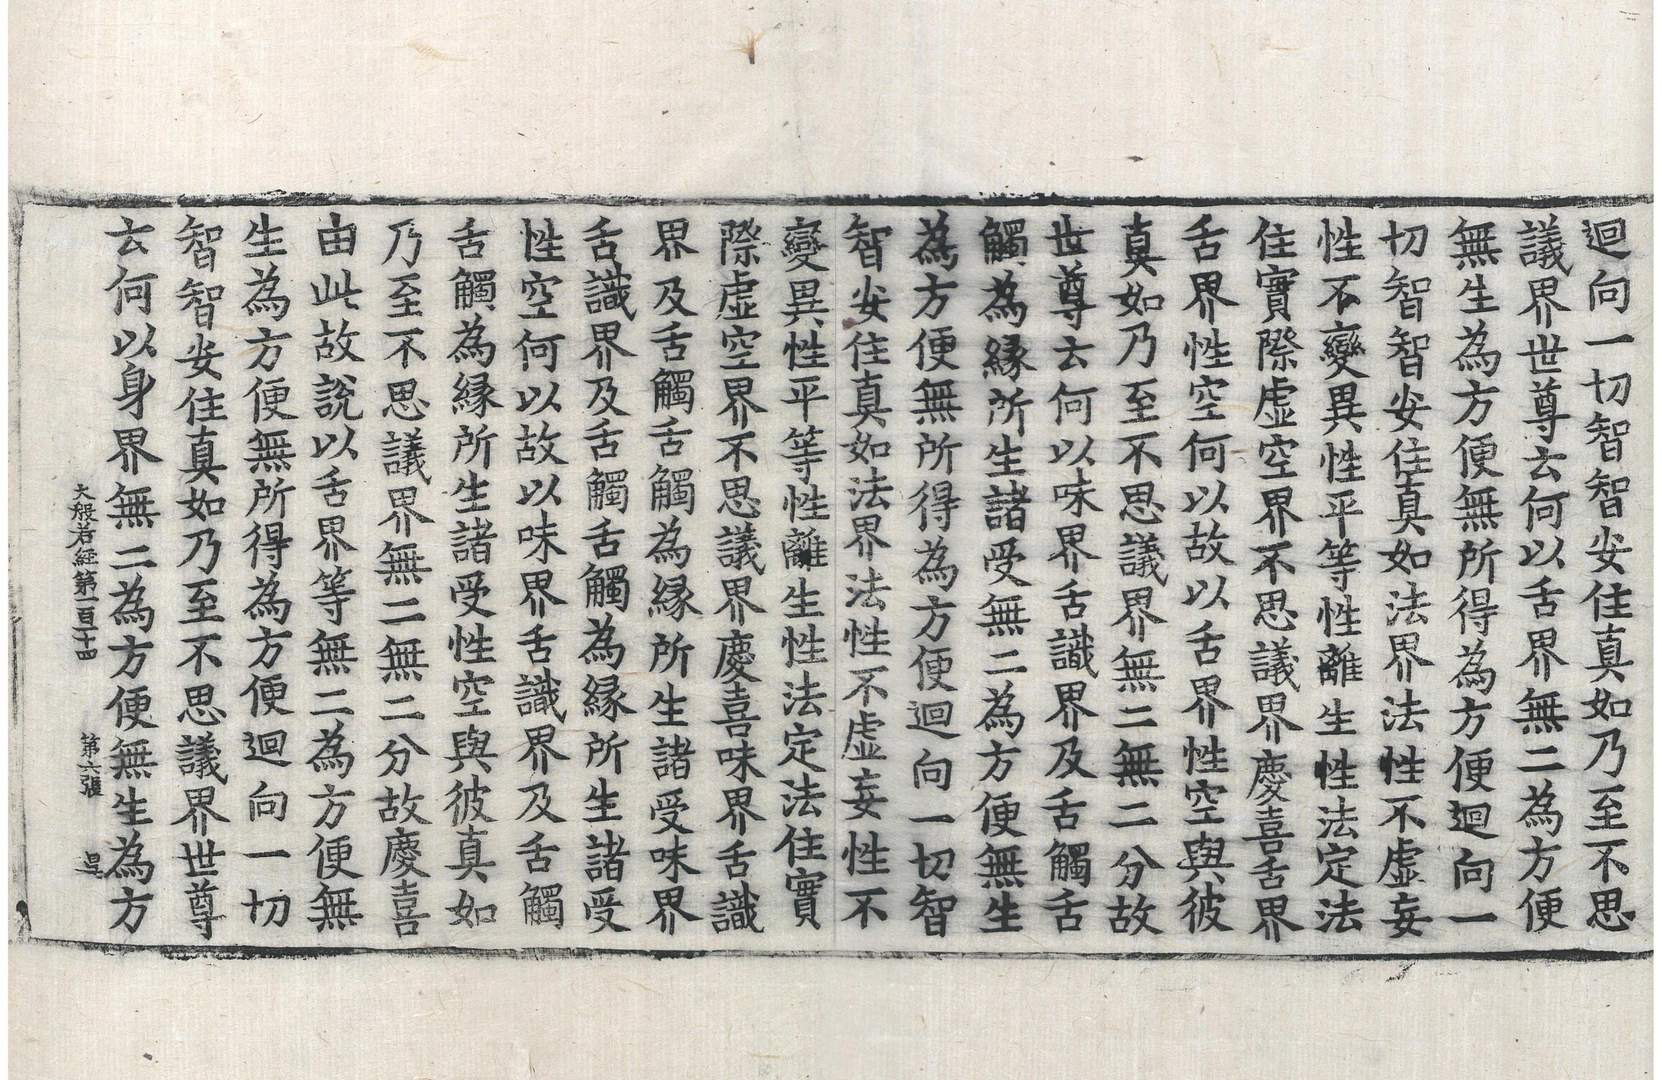 迴向一切智智安住真如乃至不思
議界世尊云何以舌界無二為方便
無生為方便無所得為方便迴向一
切智智安住真如法界法性不虛妄
性不變異性平等性離生性法定法
住實際虛空界不思議界慶喜舌界
舌界性空何以故以舌界性空與彼
真如乃至不思議界無二無二分故
世尊云何以味界舌識界及舌觸舌
觸為緣所生諸受無二為方便無生
為方便無所得為方便迴向一切智
智安住真如法界法性不虛妄性不
變異性平等性離生性法定法住實
際虛空界不思議界慶喜味界舌識
界及舌觸舌觸為緣所生諸受味界
舌識界及舌觸舌觸為緣所生諸受
性空何以故以味界舌識界及舌觸
舌觸為緣所生諸受性空與彼真如
乃至不思議界無二無二分故慶喜
由此故說以舌界等無二為方便無
生為方便無所得為方便迴向一切
智智安住真如乃至不思議界世尊
云何以身界無二為方便無生為方
大般若經第一百二十四 第六張